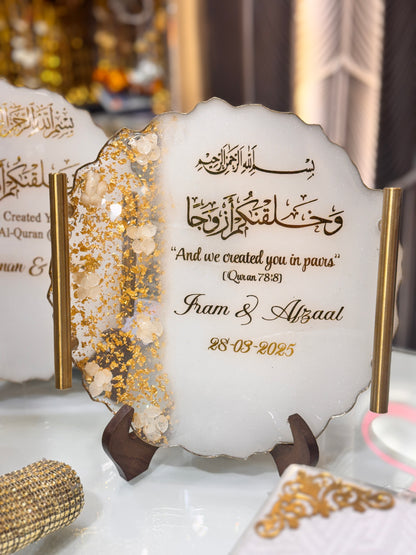 بسم الله الرحمن الرحيم
وخلقنكم أزوجا
"And we created you in pairs"
(Quran 78:8)
Iram & Afzaal
28-03-2025
بسم الله الرحمن الرحيم
Created Y
Al-Quran (